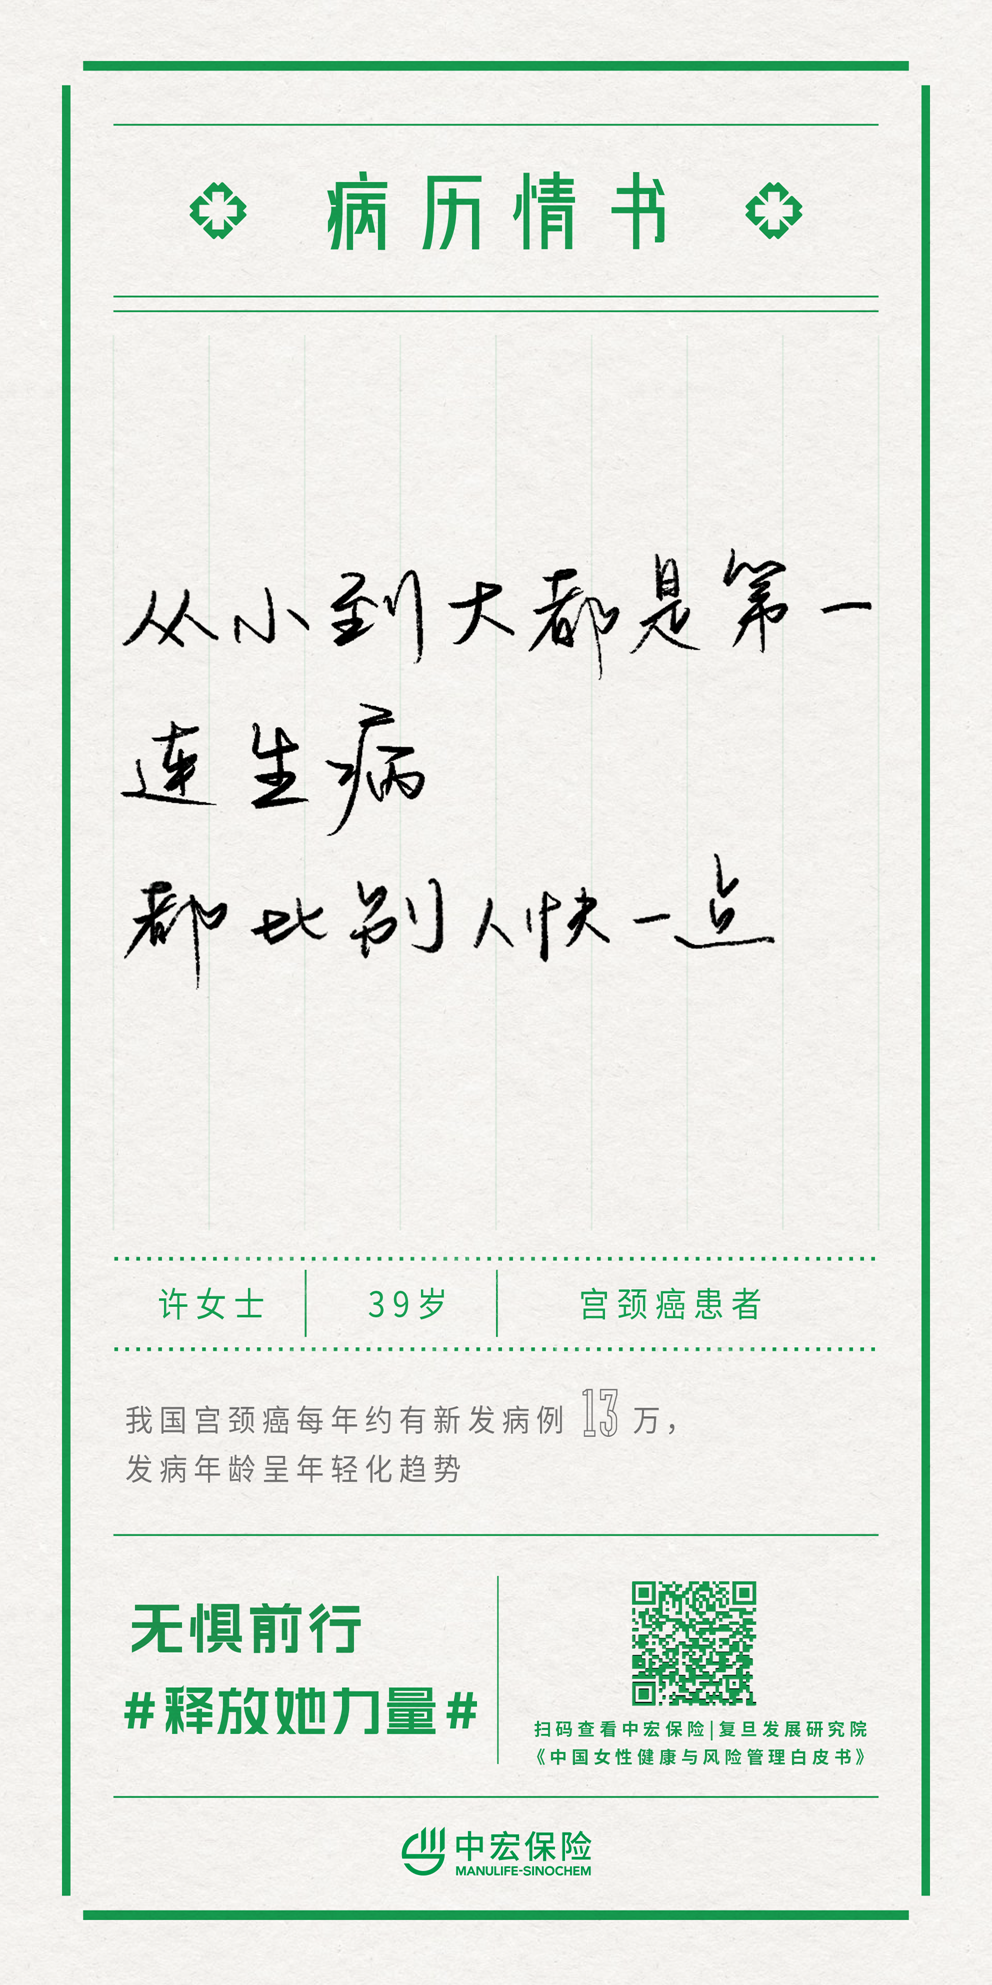 病历情书
从小到大都是第一
连生病
都比别人快一点
许女士 39岁 宫颈癌患者
我国宫颈癌每年约有新发病例 13 万，
发病年龄呈年轻化趋势
无惧前行
#释放她力量#
扫码查看中宏保险|复旦发展研究院
《中国女性健康与风险管理白皮书》
中宏保险
MANULIFE-SINOCHEM